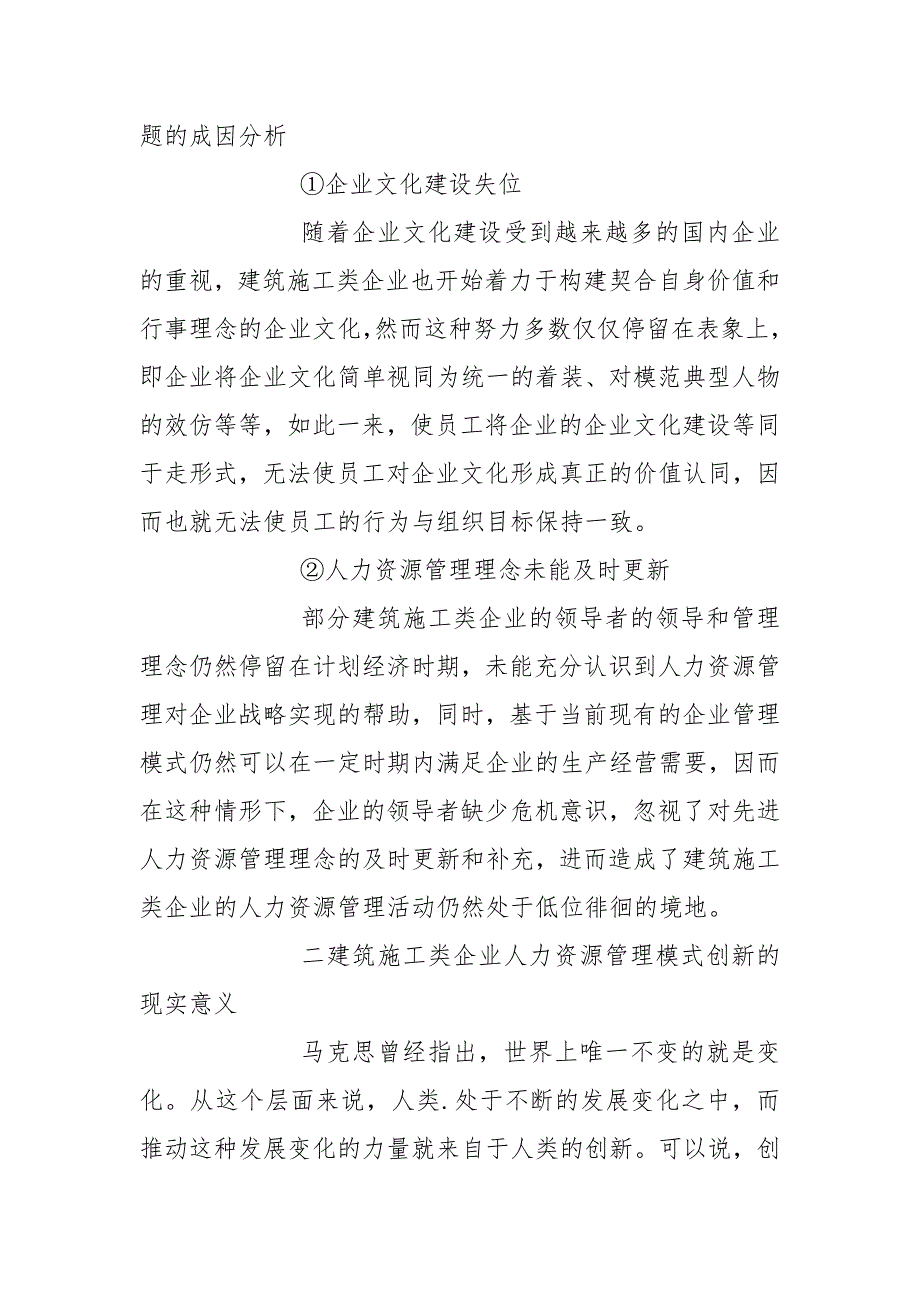 题的成因分析
①企业文化建设失位
随着企业文化建设受到越来越多的国内企业
的重视，建筑施工类企业也开始着力于构建契合自身价值和
行事理念的企业文化，然而这种努力多数仅仅停留在表象上，
即企业将企业文化简单视同为统一的着装、对模范典型人物
的效仿等等，如此一来，使员工将企业的企业文化建设等同
于走形式，无法使员工对企业文化形成真正的价值认同，因
而也就无法使员工的行为与组织目标保持一致。
②人力资源管理理念未能及时更新
部分建筑施工类企业的领导者的领导和管理
理念仍然停留在计划经济时期，未能充分认识到人力资源管
理对企业战略实现的帮助，同时，基于当前现有的企业管理
模式仍然可以在一定时期内满足企业的生产经营需要，因而
在这种情形下，企业的领导者缺少危机意识，忽视了对先进
人力资源管理理念的及时更新和补充，进而造成了建筑施工
类企业的人力资源管理活动仍然处于低位徘徊的境地。
二建筑施工类企业人力资源管理模式创新的
现实意义
马克思曾经指出，世界上唯一不变的就是变
化。从这个层面来说，人类.处于不断的发展变化之中，而
推动这种发展变化的力量就来自于人类的创新。可以说，创